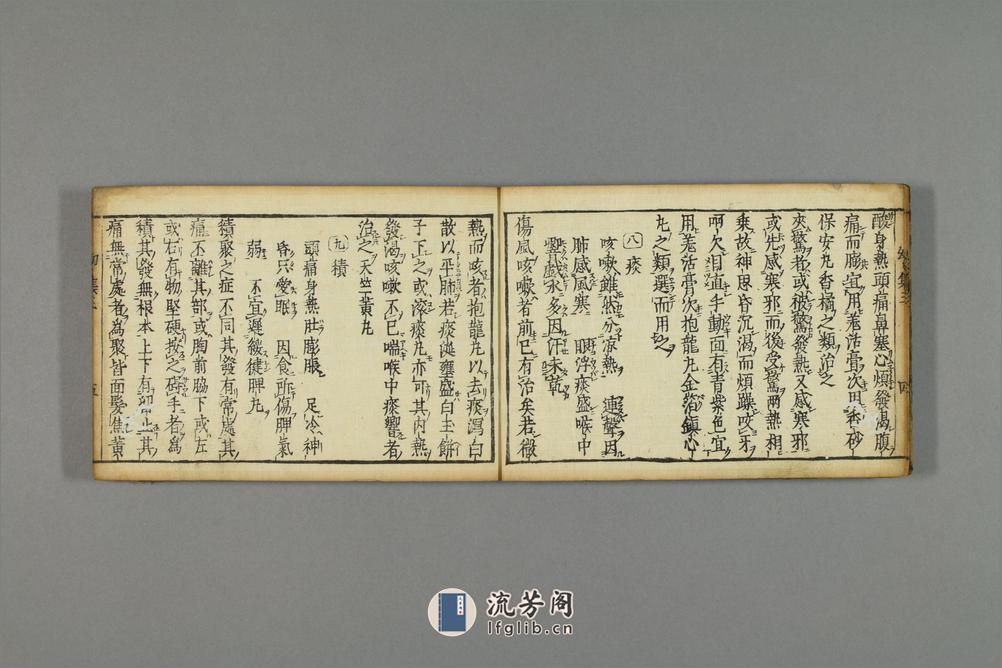 酸身熱頭痛鼻塞心煩發渴腹
痛而膨宜用羗活膏次用香砂
保安丸香橘之類治之
夾驚者或被驚發熱又感寒邪
或先感寒邪而後受驚兩熱相
乗故神思昏沉渴而煩躁咬牙
呵欠目直手動面有青紫色宜
用羗活膏次抱龍丸金箔鎮心
丸之類選而用之
八 痰
咳嗽雖然分冷熱 連聲因
肺感風寒 眼浮痰盛喉中
響 戯水多因汗未乾
傷風咳嗽者前已有治矣若徴
熱而咳者抱龍丸以去痰瀉白
散以平肺若痰涎壅盛白玉餅
子下之或滚痰丸亦可其内熱
發渴咳嗽不已喘喉中痰響者
治之天竺黄丸
九 積
頭痛身熱肚膨脹 足冷神
昏只愛眠 因食所傷脾氣
弱 不宜遲緩健脾丸
積聚之症不同其發有常處其
痛不離其部或胸前脇下或左
或右有物堅硬按之碍手者為
積其發無根本上下有 止其
痛無常處者為聚皆面 焦黄
流芳阁
lfglib.cn